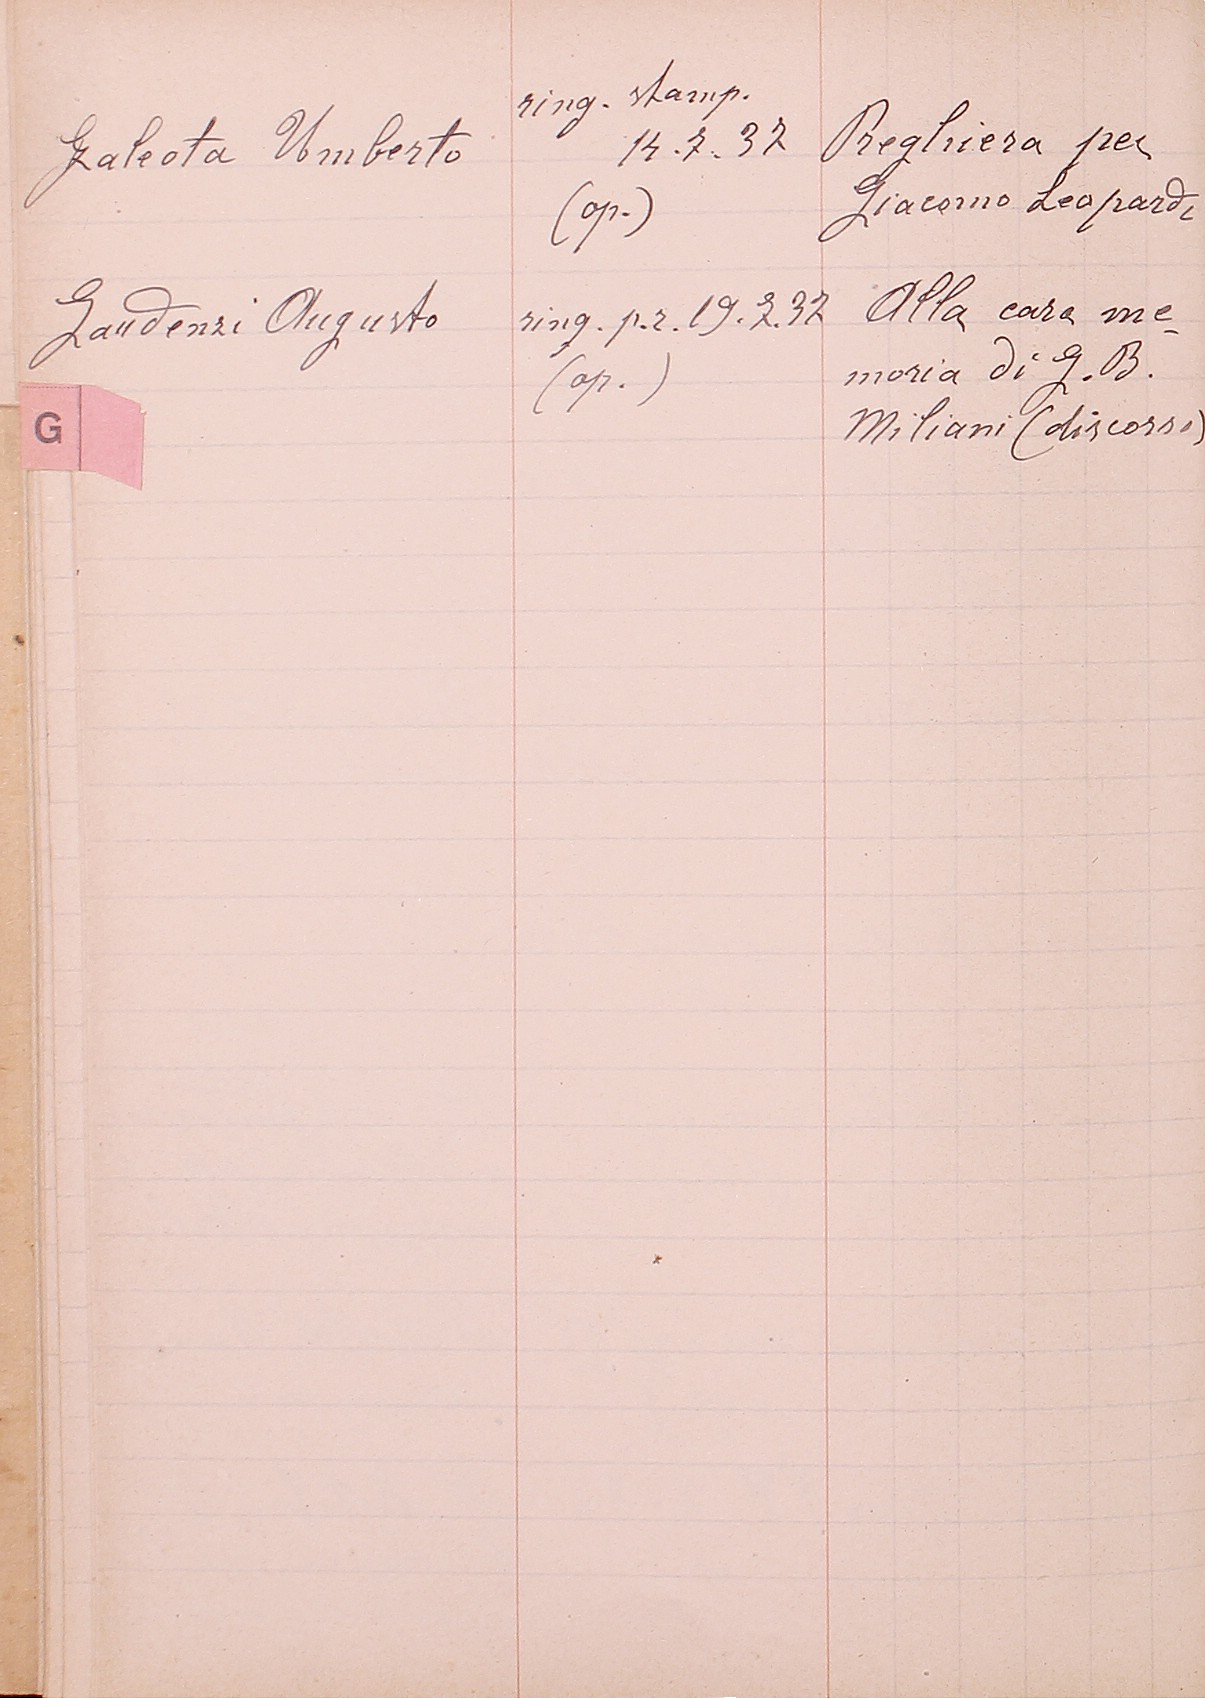 Galeota Umberto
ring. stamp.
14.7.37
(op.)
Preghiera per
Giacomo Leopardi
Gaudenzi Augusto
ring. p.r. 19.7.37
(op.)
Alla cara me-
moria di G.B.
Miliani (discorso)
G